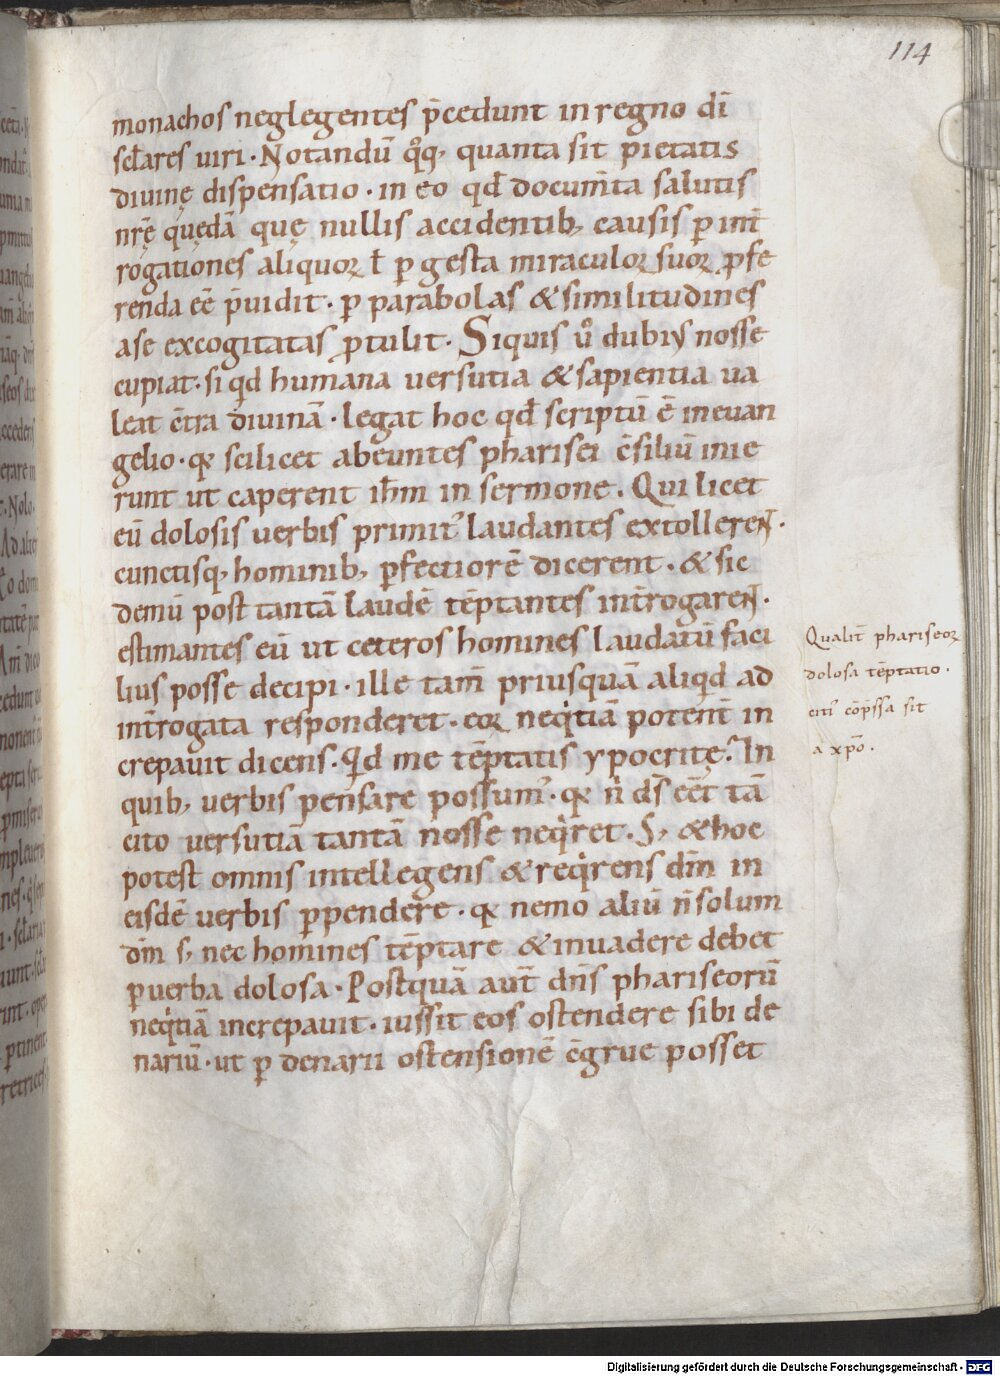 114
monachos neglegentes p̄cedunt in regno dī
sclares uiri · Notandū qͦq; quanta sit pietatis
diuinę dispensatio · in eo qđ docum̄ta salutis
nr̄ę quędā quę nullis accidentib; causis ꝑ int̄
rogationes aliquoꝝ ł ꝑ gesta miraculoꝝ suoꝝ ꝓfe
renda eē p̄uidit · ꝑ parabolas & similitudines
a se excogitatas ꝓtulit · Siquis uͦ dubiꝰ nosse
cupiat · si qđ humana uersutia & sapientia ua
leat c̄tra diuinā · legat hoc qđ scriptū ē in euan
gelio · qꝛ scilicet abeuntes pharisei c̄siliū inie
runt ut caperent ihm̄ in sermone . Qui licet
eū dolosis uerbis primit᷒ laudantes extollerent ·
cunctisq; hominib; ꝑfectiorē dicerent · & sic
demū post tantā laudē tēptantes int̄rogarent ·
estimantes eū ut ceteros homines laudatū faci
lius posse decipi · ille tam̄ priusquā aliqđ ad
int̄rogata responderet · eoꝝ neqͥtiā potent̄ in
crepauit dicens · Qđ me tēptatis ypocritę? In
quib; uerbis pensare possum᷒ · qꝛ n̄ ds̄ eēt tā
cito uersutiā tantā nosse neqͥret · S; & hoc
potest omnis intellegens & reqͥrens dm̄ in
eisdē uerbis ꝑpendere · qꝛ nemo aliū n̄ solum
dm̄ s; nec homines tēptare & inuadere debet
ꝑ uerba dolosa · Postquā aut̄ dn̄s phariseorū
neqͥtiā increpauit · iussit eos ostendere sibi de
nariū · ut ꝑ denarii ostensionē c̄grue posset
Qualit̄ phariseoꝝ
dolosa tēptatio ·
citi᷒ cōp̄ssa sit
a xp̄o .
Digitalisierung gefördert durch die Deutsche Forschungsgemeinschaft - DFG